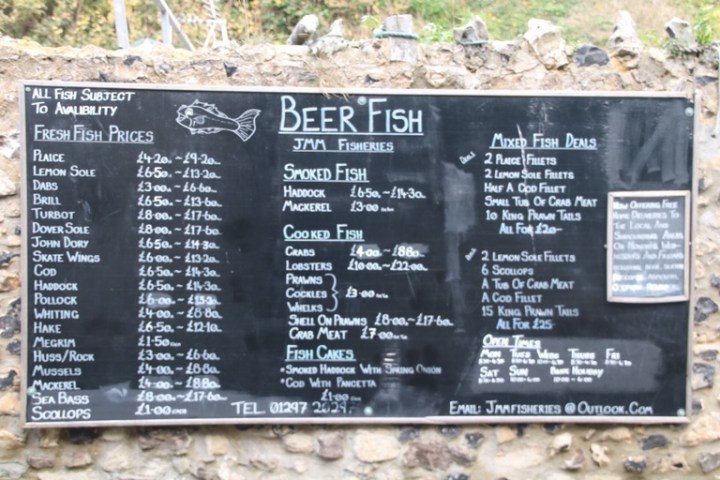 ALL FISH SUBJECT
TO AVALIBILITY
FRESH FISH PRICES
PLAICE £4·20. ~ £9·20..
LEMON SOLE £6·50. ~ £13·20..
DABS £3·00. ~ £6·60..
BRILL £6·50. ~ £13·60..
TURBOT £8·00. ~ £17·60..
DOVER SOLE £8·00. ~ £17·60..
JOHN DORY £6·50. ~ £14·30..
SKATE WINGS £6·00. ~ £13·20..
COD £6·50. ~ £14·30..
HADDOCK £6·50. ~ £14·30..
POLLOCK £6·00. ~ £13·20..
WHITING £4·00. ~ £8·80..
HAKE £6·50. ~ £12·10..
MEGRIM £1·50
HUSS/ROCK £3·00. ~ £6·60..
MUSSELS £4·00. ~ £8·80..
MACKEREL £4·00. ~ £8·80..
SEA BASS £8·00. ~ £17·60..
SCOLLOPS £1·00 EACH
BEER FISH
JMM FISHERIES
SMOKED FISH
HADDOCK £6·50. ~ £14·30..
MACKEREL £3·00
COOKED FISH
CRABS £4·00 ~ £8·80..
LOBSTERS £10·00. ~ £22·00..
PRAWNS
COCKLES £3·00
WHELKS
SHELL ON PRAWNS £8·00. ~ £17·60..
CRAB MEAT £7·00
FISH CAKES
*SMOKED HADDOCK WITH SPRING ONION
*COD WITH PANCETTA
£1·00
TEL. 01297
MIXED FISH DEALS
2 PLAICE FILLETS
2 LEMON SOLE FILLETS
HALF A COD FILLET
SMALL TUB OF CRAB MEAT
10 KING PRAWN TAILS
ALL FOR £20~
2 LEMON SOLE FILLETS
6 SCOLLOPS
A TUB OF CRAB MEAT
A COD FILLET
15 KING PRAWN TAILS
ALL FOR £25·
OPEN TIMES
MON TUES WEDS THURS FRI
SAT SUN BANK HOLIDAY
EMAIL: JMMFISHERIES @ OUTLOOK.COM
NOW OFFERING FREE
HOME DELIVERIES TO
THE LOCAL AND
SURROUNDING AREAS